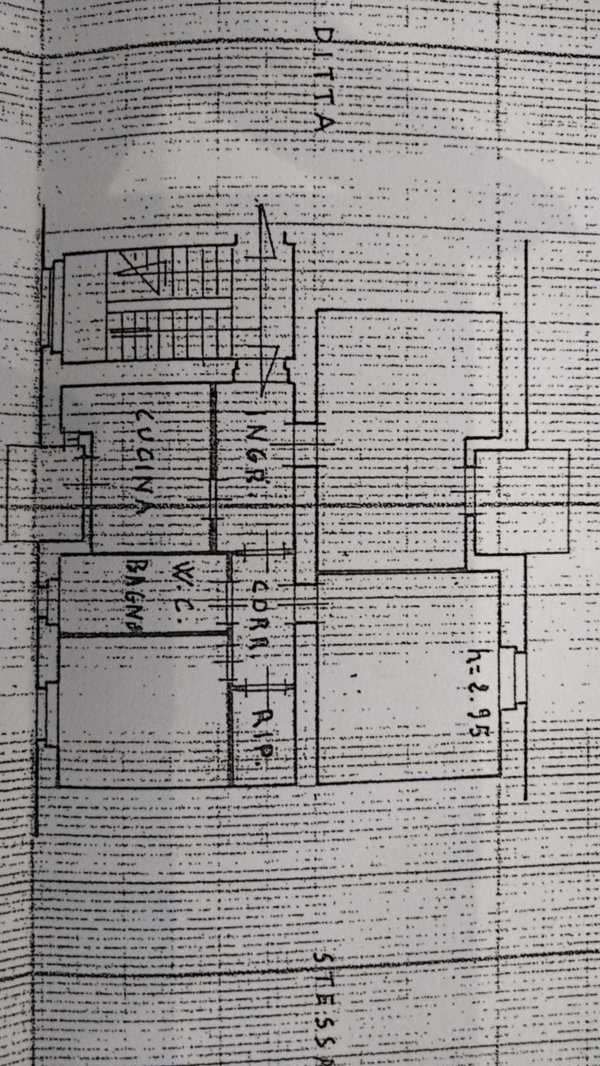 DITTA
STESSA
h=2.95
INGR.
CORR.
RIP.
CUCINA
W.C.
BAGNO